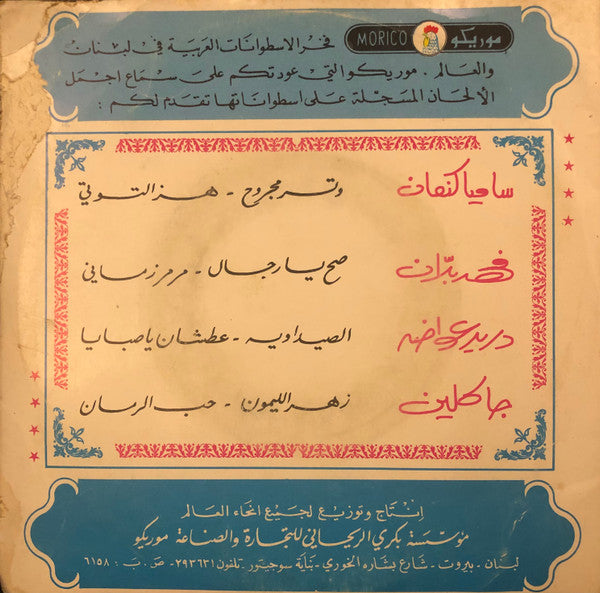 MORICO موريكو فخر الاسطوانات العربية في لبنان
والعالم . موريكو التي عودتكم على سماع اجمل
الألحان المسجلة على اسطواناتها تقدم لكم :
ساميا كنعان وتر مجروح - هز التوتي
فهد بدران صح يا رجال - مرمر زماني
دريد عواضه الصيداويه - عطشان يا صبايا
جاكلين زهر الليمون - حب الرمان
إنتاج وتوزيع لجميع انحاء العالم
مؤسسة بكري الريحاني للتجارة والصناعة موريكو
لبنان - بيروت - شارع بشاره الخوري - بناية سوجيور - تلفون ٢٩٣٦٣١ - ص . ب : ٦١٥٨